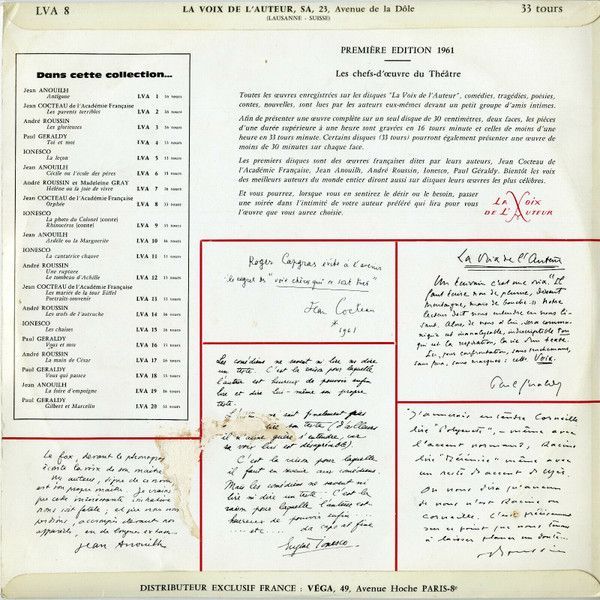 LVA 8
LA VOIX DE L'AUTEUR, SA, 23, Avenue de la Dôle
(LAUSANNE - SUISSE)
33 tours
Dans cette collection...
Jean ANOUILH
Antigone LVA 1 16 tours
Jean COCTEAU de l'Académie Française
Les parents terribles LVA 2 16 tours
André ROUSSIN
Les glorieuses LVA 3 16 tours
Paul GERALDY
Toi et moi LVA 4 33 tours
IONESCO
La leçon LVA 5 33 tours
Jean ANOUILH
Cécile ou l'école des pères LVA 6 33 tours
André ROUSSIN et Madeleine GRAY
Hélène ou la joie de vivre LVA 7 16 tours
Jean COCTEAU de l'Académie Française
Orphée LVA 8 33 tours
IONESCO
La photo du Colonel (conte)
Rhinocéros (conte) LVA 9 33 tours
Jean ANOUILH
Ardèle ou la Marguerite LVA 10 16 tours
IONESCO
La cantatrice chauve LVA 11 33 tours
André ROUSSIN
Une rupture
Le tombeau d'Achille LVA 12 33 tours
Jean COCTEAU de l'Académie Française
Les mariés de la tour Eiffel
Portraits-souvenir LVA 13 33 tours
André ROUSSIN
Les œufs de l'autruche LVA 14 16 tours
IONESCO
Les chaises LVA 15 16 tours
Paul GERALDY
Vous et moi LVA 16 33 tours
André ROUSSIN
La main de César LVA 17 16 tours
Paul GERALDY
Vous qui passez LVA 18 33 tours
Jean ANOUILH
La foire d'empoigne LVA 19 16 tours
Paul GERALDY
Gilbert et Marcelin LVA 20 33 tours
PREMIÈRE EDITION 1961
Les chefs-d'œuvre du Théâtre
Toutes les œuvres enregistrées sur les disques "La Voix de l'Auteur", comédies, tragédies, poésies,
contes, nouvelles, sont lues par les auteurs eux-mêmes devant un petit groupe d'amis intimes.
Afin de présenter une œuvre complète sur un seul disque de 30 centimètres, deux faces, les pièces
d'une durée supérieure à une heure sont gravées en 16 tours minute et celles de moins d'une
heure en 33 tours minute. Certains disques (33 tours) pourront également présenter une œuvre de
moins de 30 minutes sur chaque face.
Les premiers disques sont des œuvres françaises dites par leurs auteurs, Jean Cocteau de
l'Académie Française, Jean Anouilh, André Roussin, Ionesco, Paul Géraldy. Bientôt les voix
des meilleurs auteurs du monde entier diront aussi sur disques leurs œuvres les plus célèbres.
Et vous pourrez, lorsque vous en sentirez le désir ou le besoin, passer
une soirée dans l'intimité de votre auteur préféré qui lira pour vous
l'œuvre que vous aurez choisie.
LA VOIX
DE L'AUTEUR
Roger Capgras évite à l'avenir
le regret des "voix chères qui se sont tues"
Jean Cocteau
* 1961
La Voix de l'Auteur
Un écrivain c'est une voix. Il
faut écrire non de plume, devant
mais de bouche. Notre
lecteur doit nous entendre en nous li-
sant. Alors, de nous à lui, sera commu-
niqué
qui est la respiration, la vie d'un texte.
cette Voix.
Paul Géraldy
Les comédiens ne savent ni lire ni dire
un texte. C'est la raison pour laquelle
l'auteur est heureux de pouvoir enfin
lire et dire lui-même son propre
texte.
C'est la raison pour laquelle
il faut
Mais les comédiens ne savent ni
lire ni dire un texte. C'est la
raison pour laquelle l'auteur est
heureux de pouvoir enfin
etc... da capo al fine
Eugène Ionesco
J'aimerais entendre Corneille
lire "Polyeucte", même avec
l'accent normand, Racine
lire "Bérénice" même avec
un reste d'accent
Roussin
Le fox, devant le phonographe
écoute la voix de son maître.
Un auteur, digne de ce nom,
est son propre maître. Je crains
que cette intéressante initiative
Jean Anouilh
DISTRIBUTEUR EXCLUSIF FRANCE : VÉGA, 49, Avenue Hoche PARIS-8e